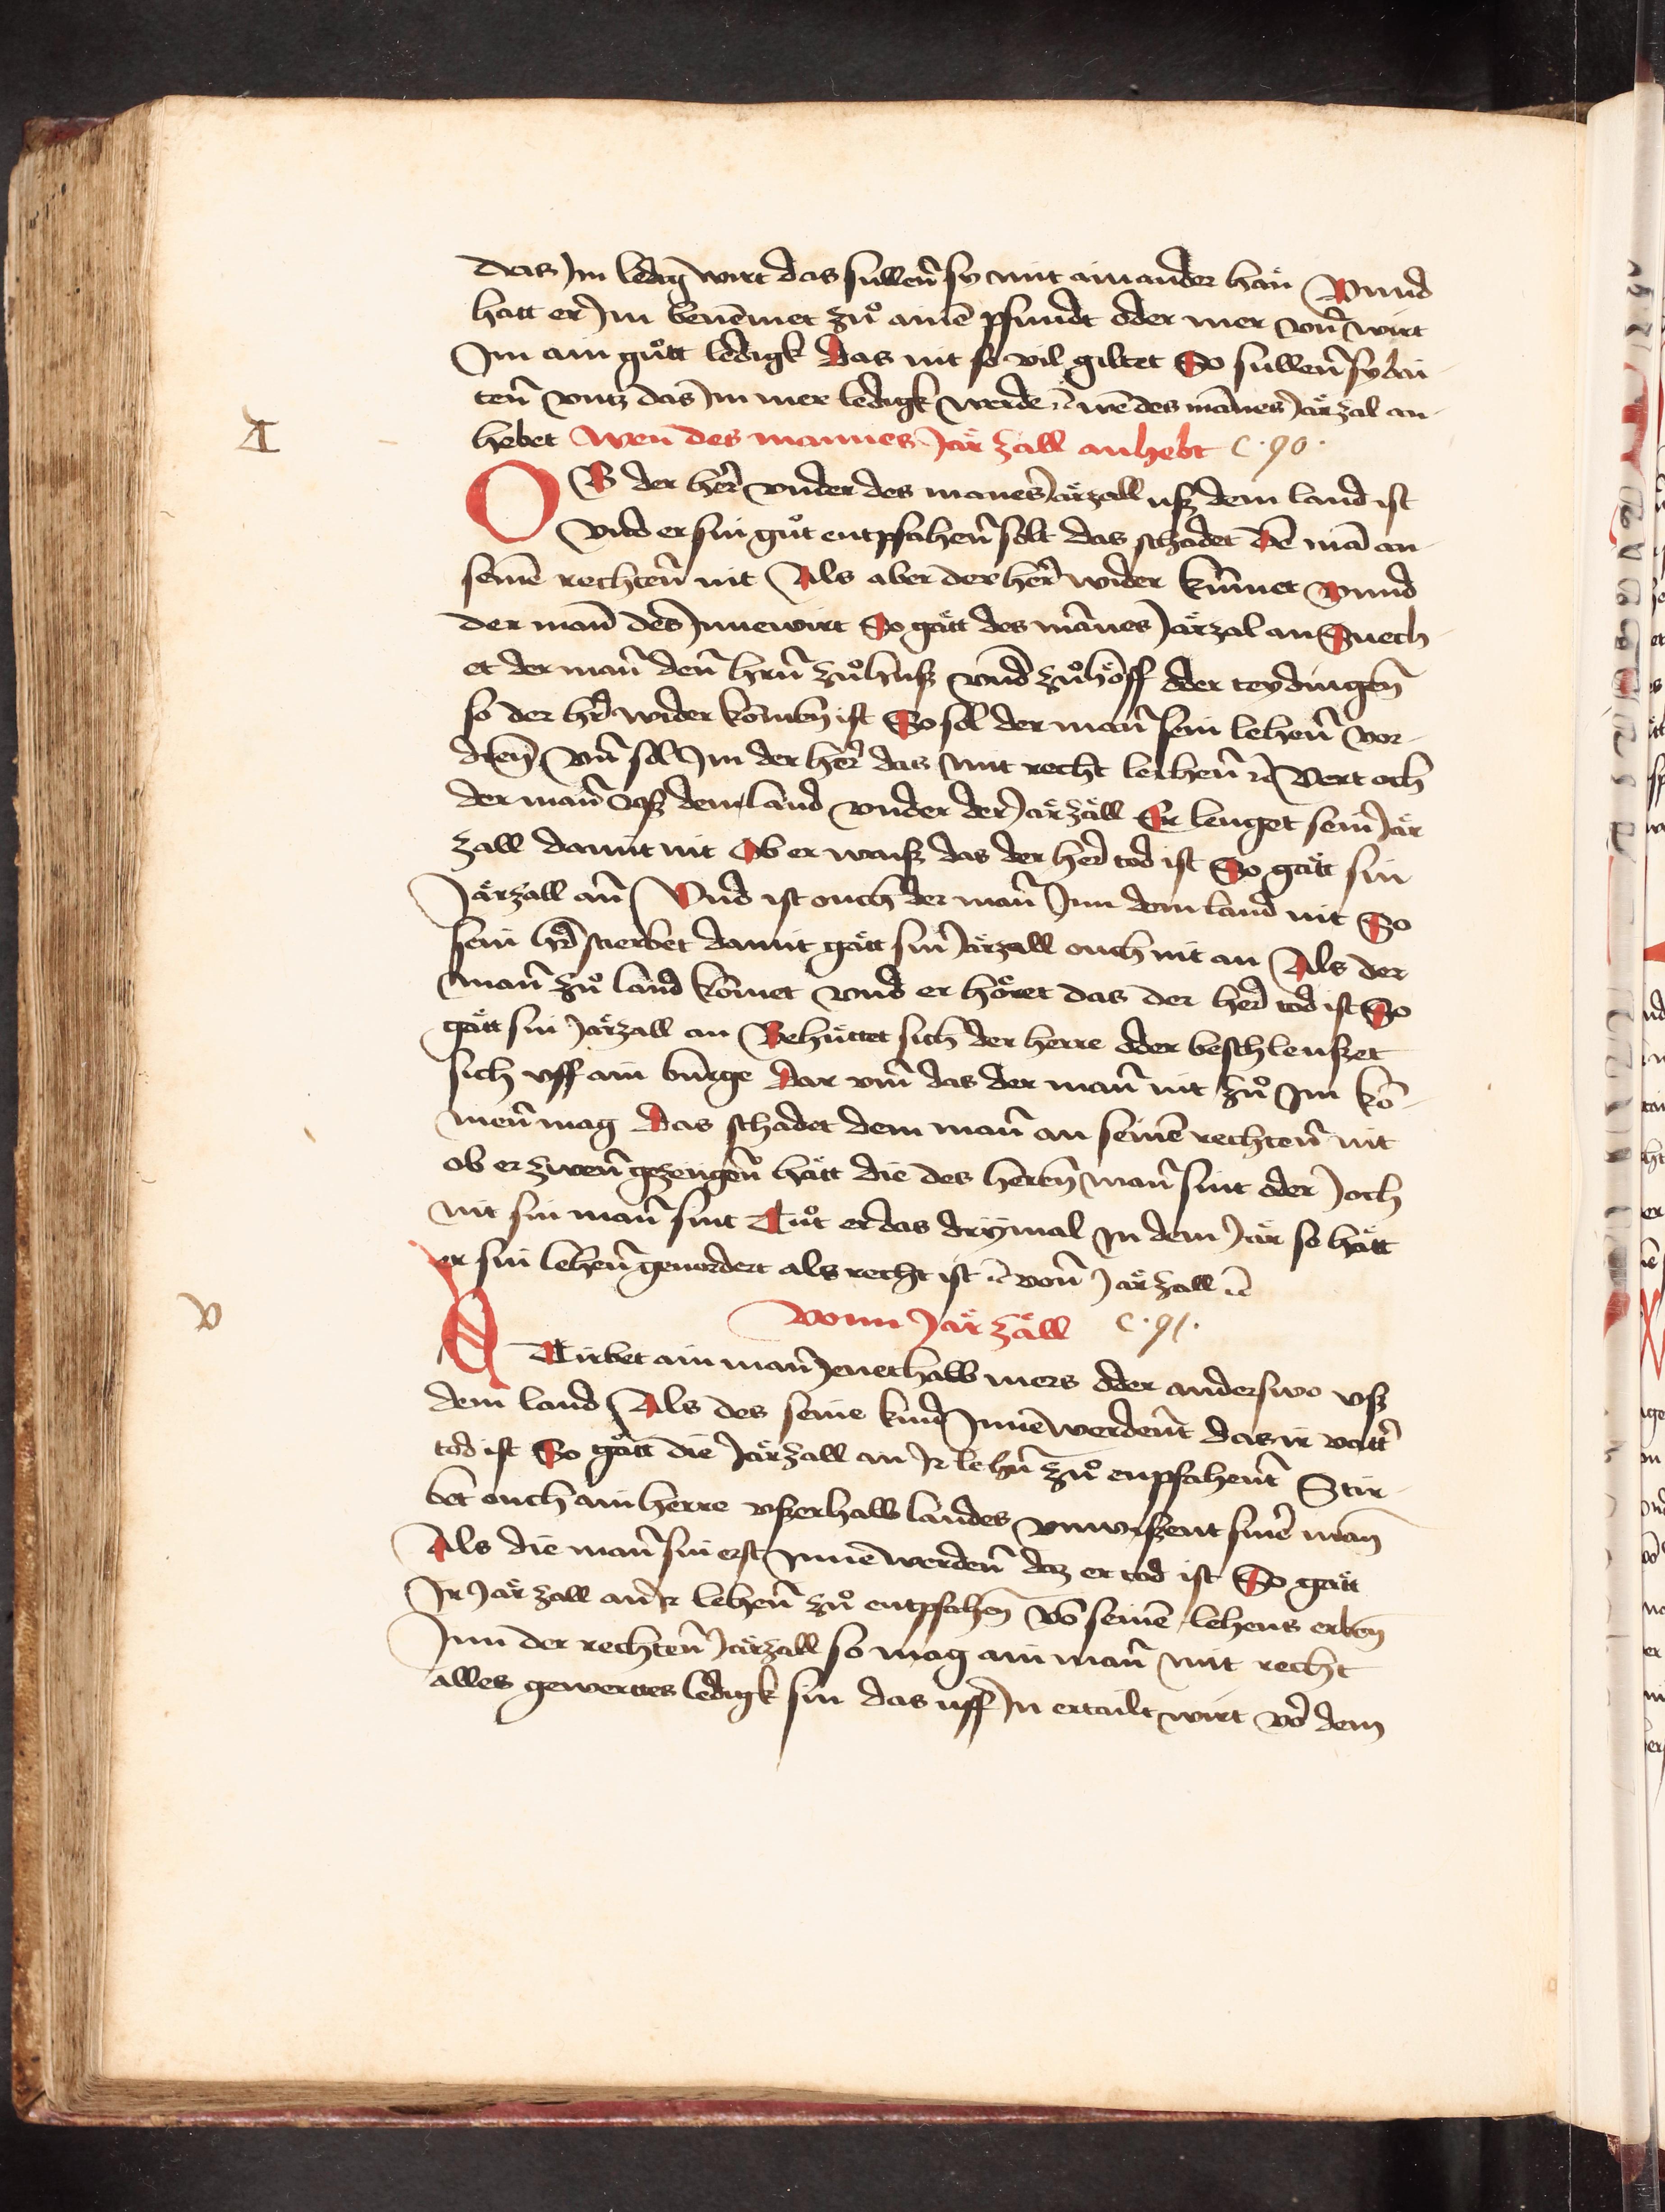 das Im ledig wirt das sullen̄ sy mit ainander han Vnnd
hatt er Im benēmet zů ainē pfundt oder mer vn̄ wirt
Im ain gůtt ledigk Das nit so vil giltet So sullen̄ sy bai
ten̄ vntz das Im mer ledigk werde wē des mānes Järzal an
hebet Wen des mannes Jär zall anhebt c. 90.
OB der her̄ vnder des manes Järzall usz dem land ist
vnd er sin gůt entpfahen̄ solt das schadet dē mā an
seinē rechten̄ nit Als aber der her̄ wider kūmet Vnnd
der man̄ des Innewirt So gätt des mānes Järzal an Suech
et der man̄ den̄ hrn̄ zůhusz vnd zůhöff oder teydingen̄
so der hr̄ wider komen ist So sol der man̄ sein lehen̄ vor
dren̄ vn̄ sol Im der her̄ das mit recht leihen̄ Vert och
der man̄ vsz dem land vnder der Järzäll Er lenget sein Jär
zall damit nit Ob er waisz das der herr tod ist So gätt sin
Järzall an̄ Vnd ist ouch der man̄ Inn dem land nit So
sein hr̄ stierbet damit gätt sin Järzall ouch nit an Als der
man̄ zů land komet vnd er höret das der herr tod ist So
gätt sin Järzall an Behüttet sich der herre oder beschleuszet
sich vff ain bürge Dar vm̄ das der man̄ nit zů Im kō
men̄ mag Das schadet dem man̄ an seinē rechten̄ nit
ob er zwen̄ gezeügen̄ hätt die des herren̄ man̄ sint oder Joch
nit sin man̄ sint Tůt er das drymal In dem Jär so hätt
er sin lehen̄ geuordert als recht ist von̄ Järzall
Vonn Jär zäll c. 91.
STirbet ain man̄ Jenethalb mers oder anderswo vsz
dem land Als des seine kind Innē werdent das ir vatt̄
tod ist So gätt die Järzall an Ir lehn̄ zů enpfahent Stir
bet ouch ain herre vszerhalb landes vnwiszent sinē man̄
Als die man̄ sin erst Innē werden̄ daz er tod ist So gätt
Ir Järzall an Ir lehen̄ zů entpfahen̄ vō seinē lehens erben̄
Inn der rechten̄ Järzall so mag ain man̄ mit recht
alles gewerttes ledigk sin das uff In ertailt wirt vō dem